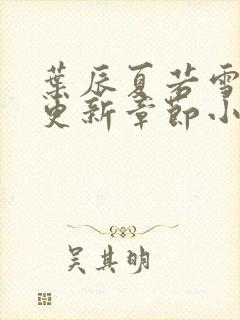 葉辰夏若雪
更新章節小
吳其明